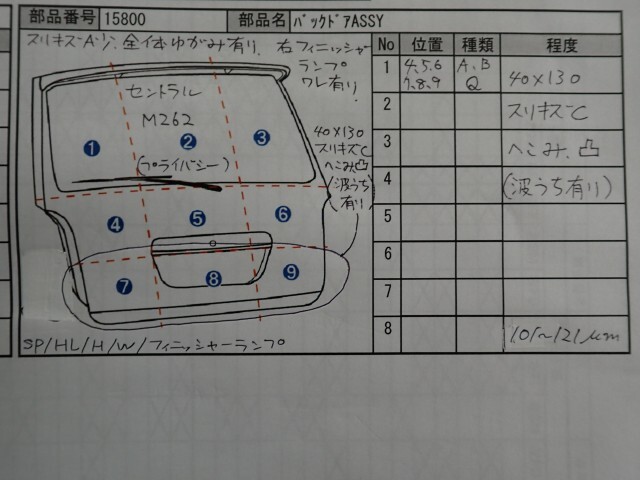 部品番号 15800 部品名 ﾊﾞｯｸﾄﾞｱASSY
スリキズA小 全体ゆがみ有り. 右フィニッシャー
ランプ
ワレ有り
セントラル
M262
(プライバシー)
1
2
3
4
5
6
7
8
9
40×130
スリキズC
へこみ凸
(波うち
有り)
SP/HL/H/W/フィニッシャーランプ
No 位置 種類 程度
1 4,5,6 A,B 40×130
7,8,9 Q
2 スリキズC
3 へこみ.凸
4 (波うち有り)
5
6
7
8 101~121μm